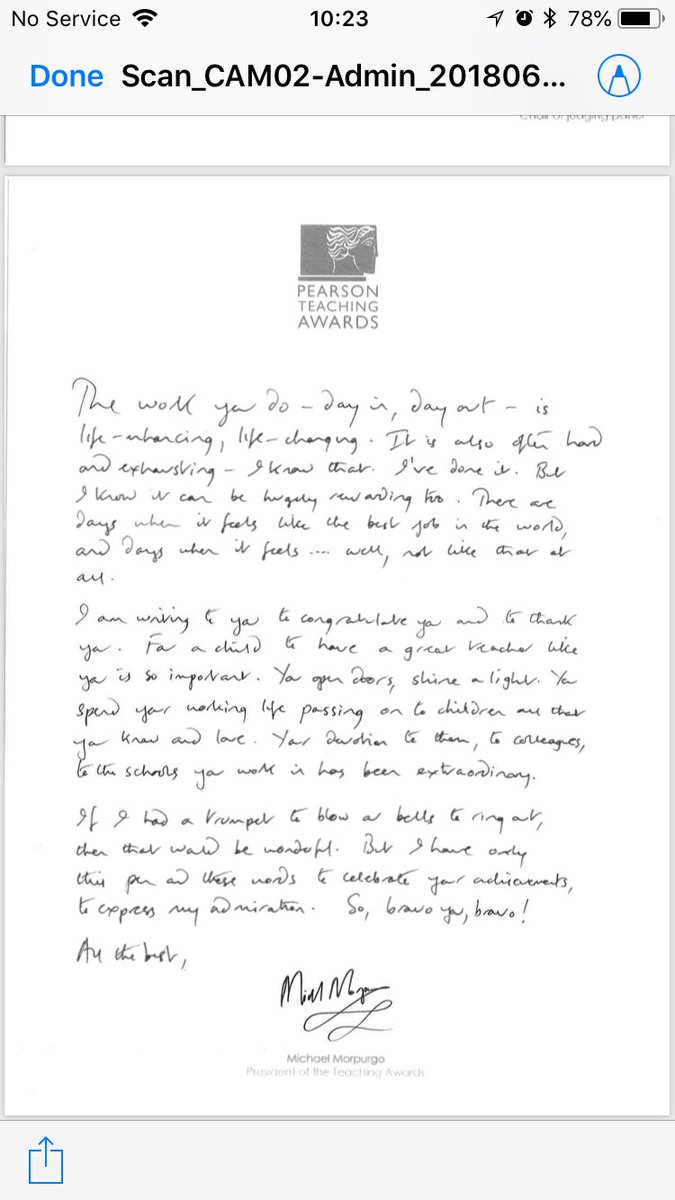 No Service 10:23 78%
Done Scan_CAM02-Admin_201806...
Chair of judging panel
PEARSON
TEACHING
AWARDS
The work you do – day in, day out – is
life-enhancing, life-changing. It is also often hard
and exhausting – I know that. I've done it. But
I know it can be hugely rewarding too. There are
days when it feels like the best job in the world,
and days when it feels .... well, not like that at
all.
I am writing to you to congratulate you and to thank
you. For a child to have a great teacher like
you is so important. You open doors, shine a light. You
spend your working life passing on to children all that
you know and love. Your devotion to them, to colleagues,
to the schools you work in has been extraordinary.
If I had a trumpet to blow or bells to ring out,
then that would be wonderful. But I have only
this pen and these words to celebrate your achievements,
to express my admiration. So, bravo you, bravo!
All the best,
Michael Morpurgo
Michael Morpurgo
President of the Teaching Awards